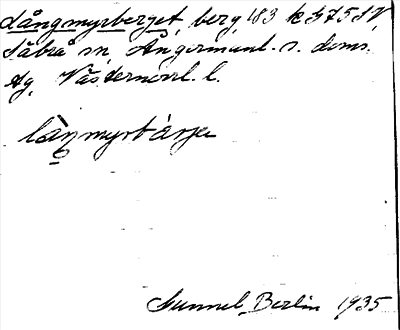 Långmyrberget, berg, 183 k 5758V,
Säbrå sn, Ångermanl. s. doms.
Ag. Västernorrl. l.
làŋmyrbárje
Gunnel Berlin 1935